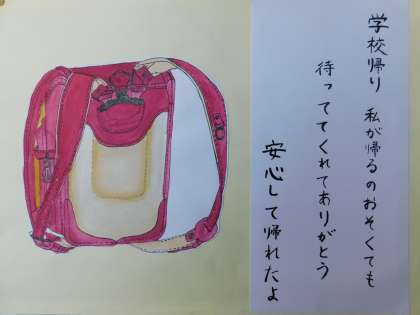 学校帰り 私が帰るのおそくても
待っててくれてありがとう
安心して帰れたよ